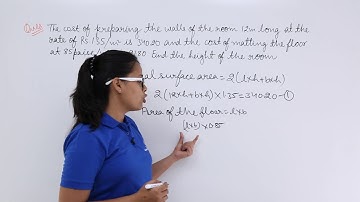 Ques) The cost of preparing the walls of the room 12m long at the
rate of Rs 1.35/m² is 340.20 and the cost of matting the floor
at 85 paise/ 91.80 Find the height of the room
al surface area = 2(lxh+bxh)
2(12xh+bxh)x1.35=340.20-①
Area of the floor = lxb
(lxb)x0.85